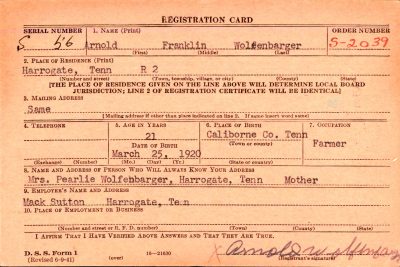 REGISTRATION CARD
SERIAL NUMBER 1. NAME (Print) ORDER NUMBER
S. 56 Arnold Franklin Wolfenbarger S-2039
(First) (Middle) (Last)
2. PLACE OF RESIDENCE (Print)
Harrogate, Tenn R 2
(Number and street) (Town, township, village, or city) (County) (State)
[THE PLACE OF RESIDENCE GIVEN ON THE LINE ABOVE WILL DETERMINE LOCAL BOARD
JURISDICTION; LINE 2 OF REGISTRATION CERTIFICATE WILL BE IDENTICAL]
3. MAILING ADDRESS
Same
[Mailing address if other than place indicated on line 2. If same insert word same]
4. TELEPHONE 5. AGE IN YEARS 6. PLACE OF BIRTH 7. OCCUPATION
21 Caliborne Co. Tenn
DATE OF BIRTH (Town or county) Farmer
March 25, 1920
(Exchange) (Number) (Mo.) (Day) (Yr.) (State or country)
8. NAME AND ADDRESS OF PERSON WHO WILL ALWAYS KNOW YOUR ADDRESS
Mrs. Pearlie Wolfenbarger, Harrogate, Tenn Mother
9. EMPLOYER'S NAME AND ADDRESS
Mack Sutton Harrogate, Tenn
10. PLACE OF EMPLOYMENT OR BUSINESS
(Number and street or R. F. D. number) (Town) (County) (State)
I AFFIRM THAT I HAVE VERIFIED ABOVE ANSWERS AND THAT THEY ARE TRUE.
D. S. S. Form 1 16-21630 X Arnold
(Revised 6-9-41) (over) (Registrant's signature)